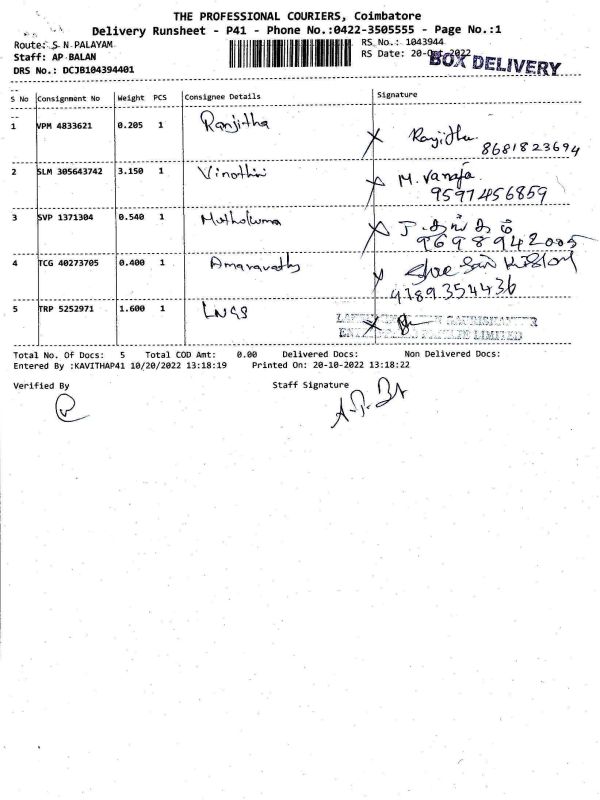 THE PROFESSIONAL COURIERS, Coimbatore
Delivery Runsheet - P41 - Phone No.:0422-3505555 - Page No.:1
Route: S N PALAYAM RS No.: 1043944
Staff: AP BALAN RS Date: 20-Oct-2022
BOX DELIVERY
DRS No.: DCJB104394401
S No Consignment No Weight PCS Consignee Details Signature
1 VPM 4833621 0.205 1 Ranjitha Ranjitha
8681823694
2 SLM 305643742 3.150 1 Vinothini M. Vanaja
9597456859
3 SVP 1371304 0.540 1 Muthukuma
9698942005
4 TCG 40273705 0.400 1 Amaravathy Shree Sai
9789354436
5 TRP 5252971 1.600 1 LNGS
PRIVATE LIMITED
Total No. Of Docs: 5 Total COD Amt: 0.00 Delivered Docs: Non Delivered Docs:
Entered By :KAVITHAP41 10/20/2022 13:18:19 Printed On: 20-10-2022 13:18:22
Verified By Staff Signature